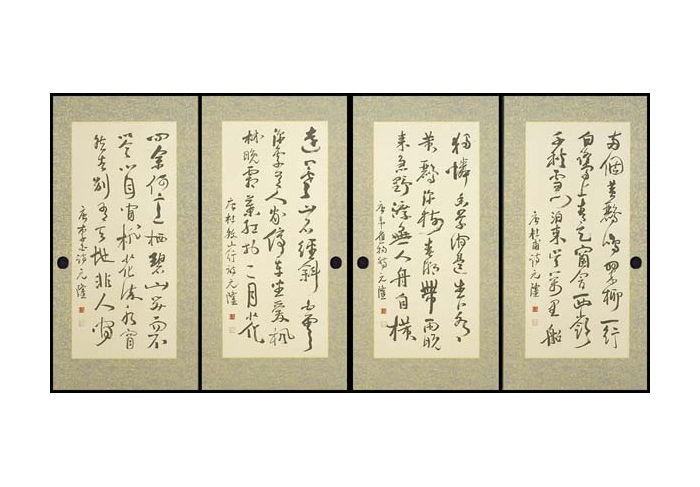 两個黄鸝鳴翠柳一行
白鷺上青天窗含西嶺
千秋雪門泊東吳萬里船
唐杜甫詩元
獨憐幽草澗邊生上有
黄鸝深樹鳴春潮帶雨晚
來急野渡無人舟自横
唐韋應物詩元
遠上寒山石經斜白雲
深處有人家停車坐愛楓
林晚霜葉紅於二月花
唐杜牧山行詩元
問余何意栖碧山笑而不
答心自閑桃花流水窅
然去別有天地非人間
唐李白詩元